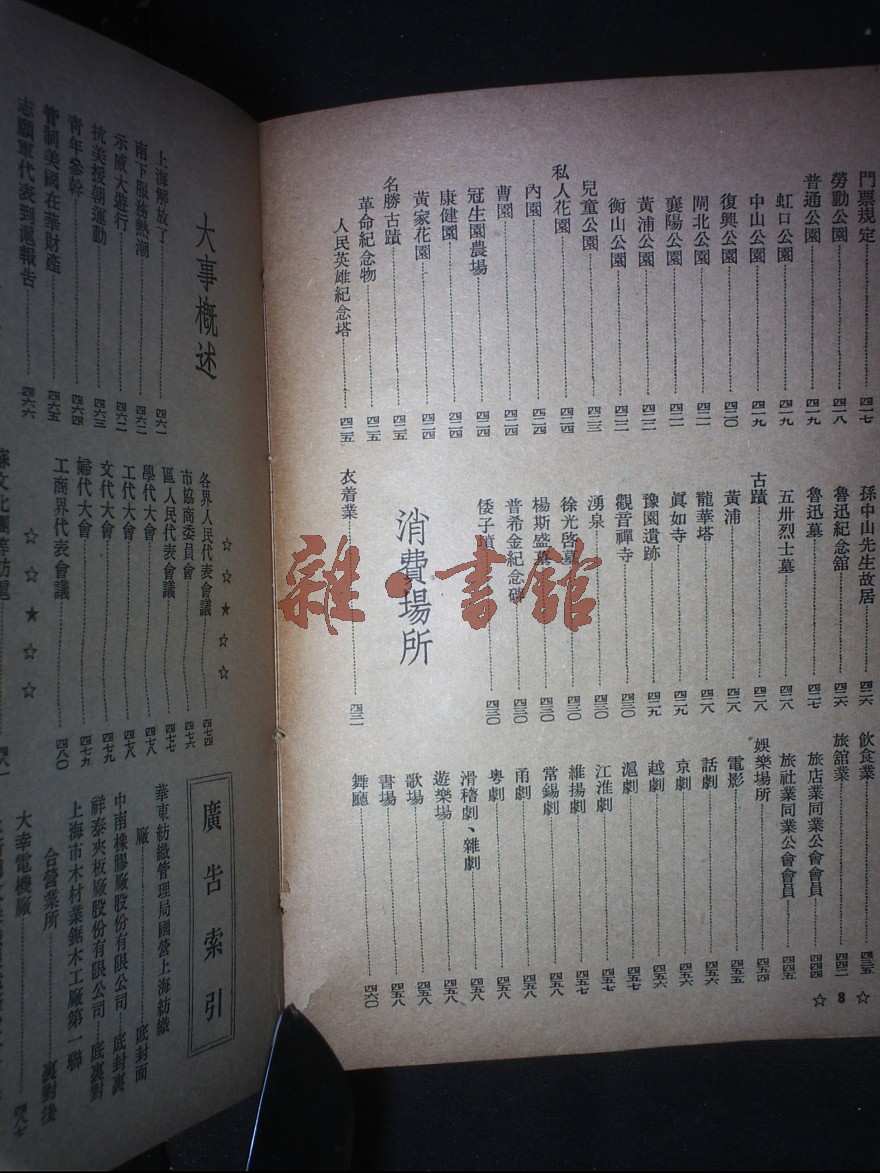 ☆ 8 ☆
門票規定 四一七
勞動公園 四一八
普通公園 四一九
虹口公園 四一九
中山公園 四一九
復興公園 四二〇
閘北公園 四二一
襄陽公園 四二一
黃浦公園 四二二
衡山公園 四二二
兒童公園 四二三
私人花園 四二四
內園 四二四
曹園 四二四
冠生園農場 四二四
康健園 四二四
黃家花園 四二四
名勝古蹟 四二五
革命紀念物 四二五
人民英雄紀念塔 四二五
孫中山先生故居 四二六
魯迅紀念舘 四二六
魯迅墓 四二七
五卅烈士墓 四二八
古蹟 四二八
黃浦 四二八
龍華塔 四二八
眞如寺 四二九
豫園遺跡 四二九
觀音禪寺 四三〇
湧泉 四三〇
徐光啓墓 四三〇
楊斯盛墓 四三〇
普希金紀念碑 四三〇
倭子墳 四三〇
消費場所
衣着業 四三一
飲食業 四三五
旅舘業 四四二
旅店業同業公會會員 四四四
旅社業同業公會會員 四四五
娛樂場所 四五四
電影 四五五
話劇 四五六
京劇 四五六
越劇 四五六
滬劇 四五七
江淮劇 四五七
維揚劇 四五七
常錫劇 四五八
甬劇 四五八
粵劇 四五八
滑稽劇、雜劇 四五八
遊樂場 四五八
書場 四五八
歌場 四五八
舞廳 四六〇
大事概述
上海解放了 四六一
南下服務熱潮 四六二
示威大遊行 四六二
抗美援朝運動 四六三
青年參幹 四六四
管制美國在華財產 四六五
志願軍代表到滬報告 四六六
☆ ☆ ★ ☆ ☆
各界人民代表會議 四七四
市協商委員會 四七六
區人民代表會議 四七七
學代大會 四七八
工代大會 四七八
文代大會 四七九
婦代大會 四七九
工商界代表會議 四八〇
☆ ☆ ★ ☆ ☆
廣告索引
華東紡織管理局國營上海紡織
廠 底封面
中南橡膠廠股份有限公司 底封裏
祥泰夾板廠股份有限公司 底裏對
上海市木材業鋸木工廠第一聯
合營業所 裏對後
大幸電機廠 四八七
雜·書舘